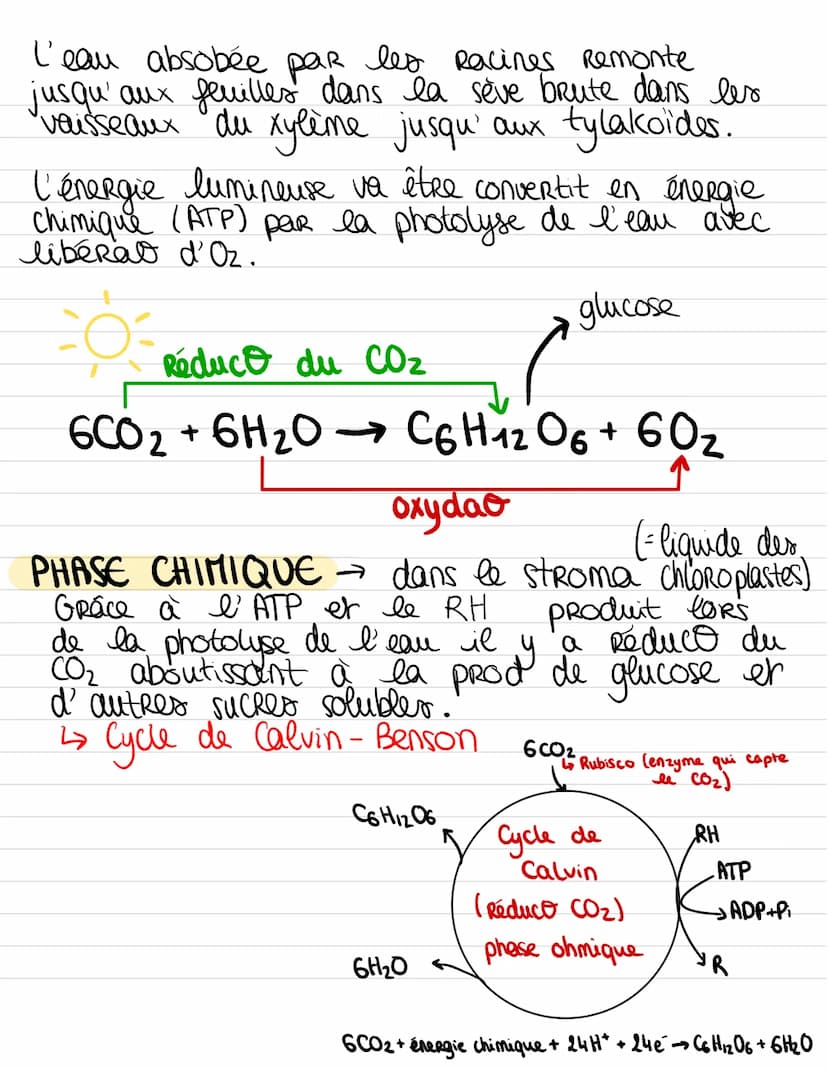 L'eau absobée par les racines remonte
jusqu'aux feuilles dans la sève brute dans les
vaisseaux du xylème jusqu'aux tylakoïdes.
L'énergie lumineuse va être convertit en énergie
chimique (ATP) par la photolyse de l'eau avec
libéraº d'O₂.
glucose
Réducº du CO₂
6CO₂ + 6H₂O → C₆H₁₂O₆ + 6O₂
oxydaº
(= liquide des
PHASE CHIMIQUE → dans le stroma chloroplastes)
Grâce à l'ATP et le RH produit lors
de la photolyse de l'eau il y a réducº du
CO₂ aboutissant à la prod° de glucose et
d'autres sucres solubles.
↳ Cycle de Calvin-Benson
6CO₂
↳ Rubisco (enzyme qui capte
le CO₂)
C₆H₁₂O₆
Cycle de
Calvin
(réducº CO₂)
phase ohmique
RH
ATP
ADP+Pi
R
6H₂O
6CO₂ + énergie chimique + 24H⁺ + 24e⁻ → C₆H₁₂O₆ + 6H₂O